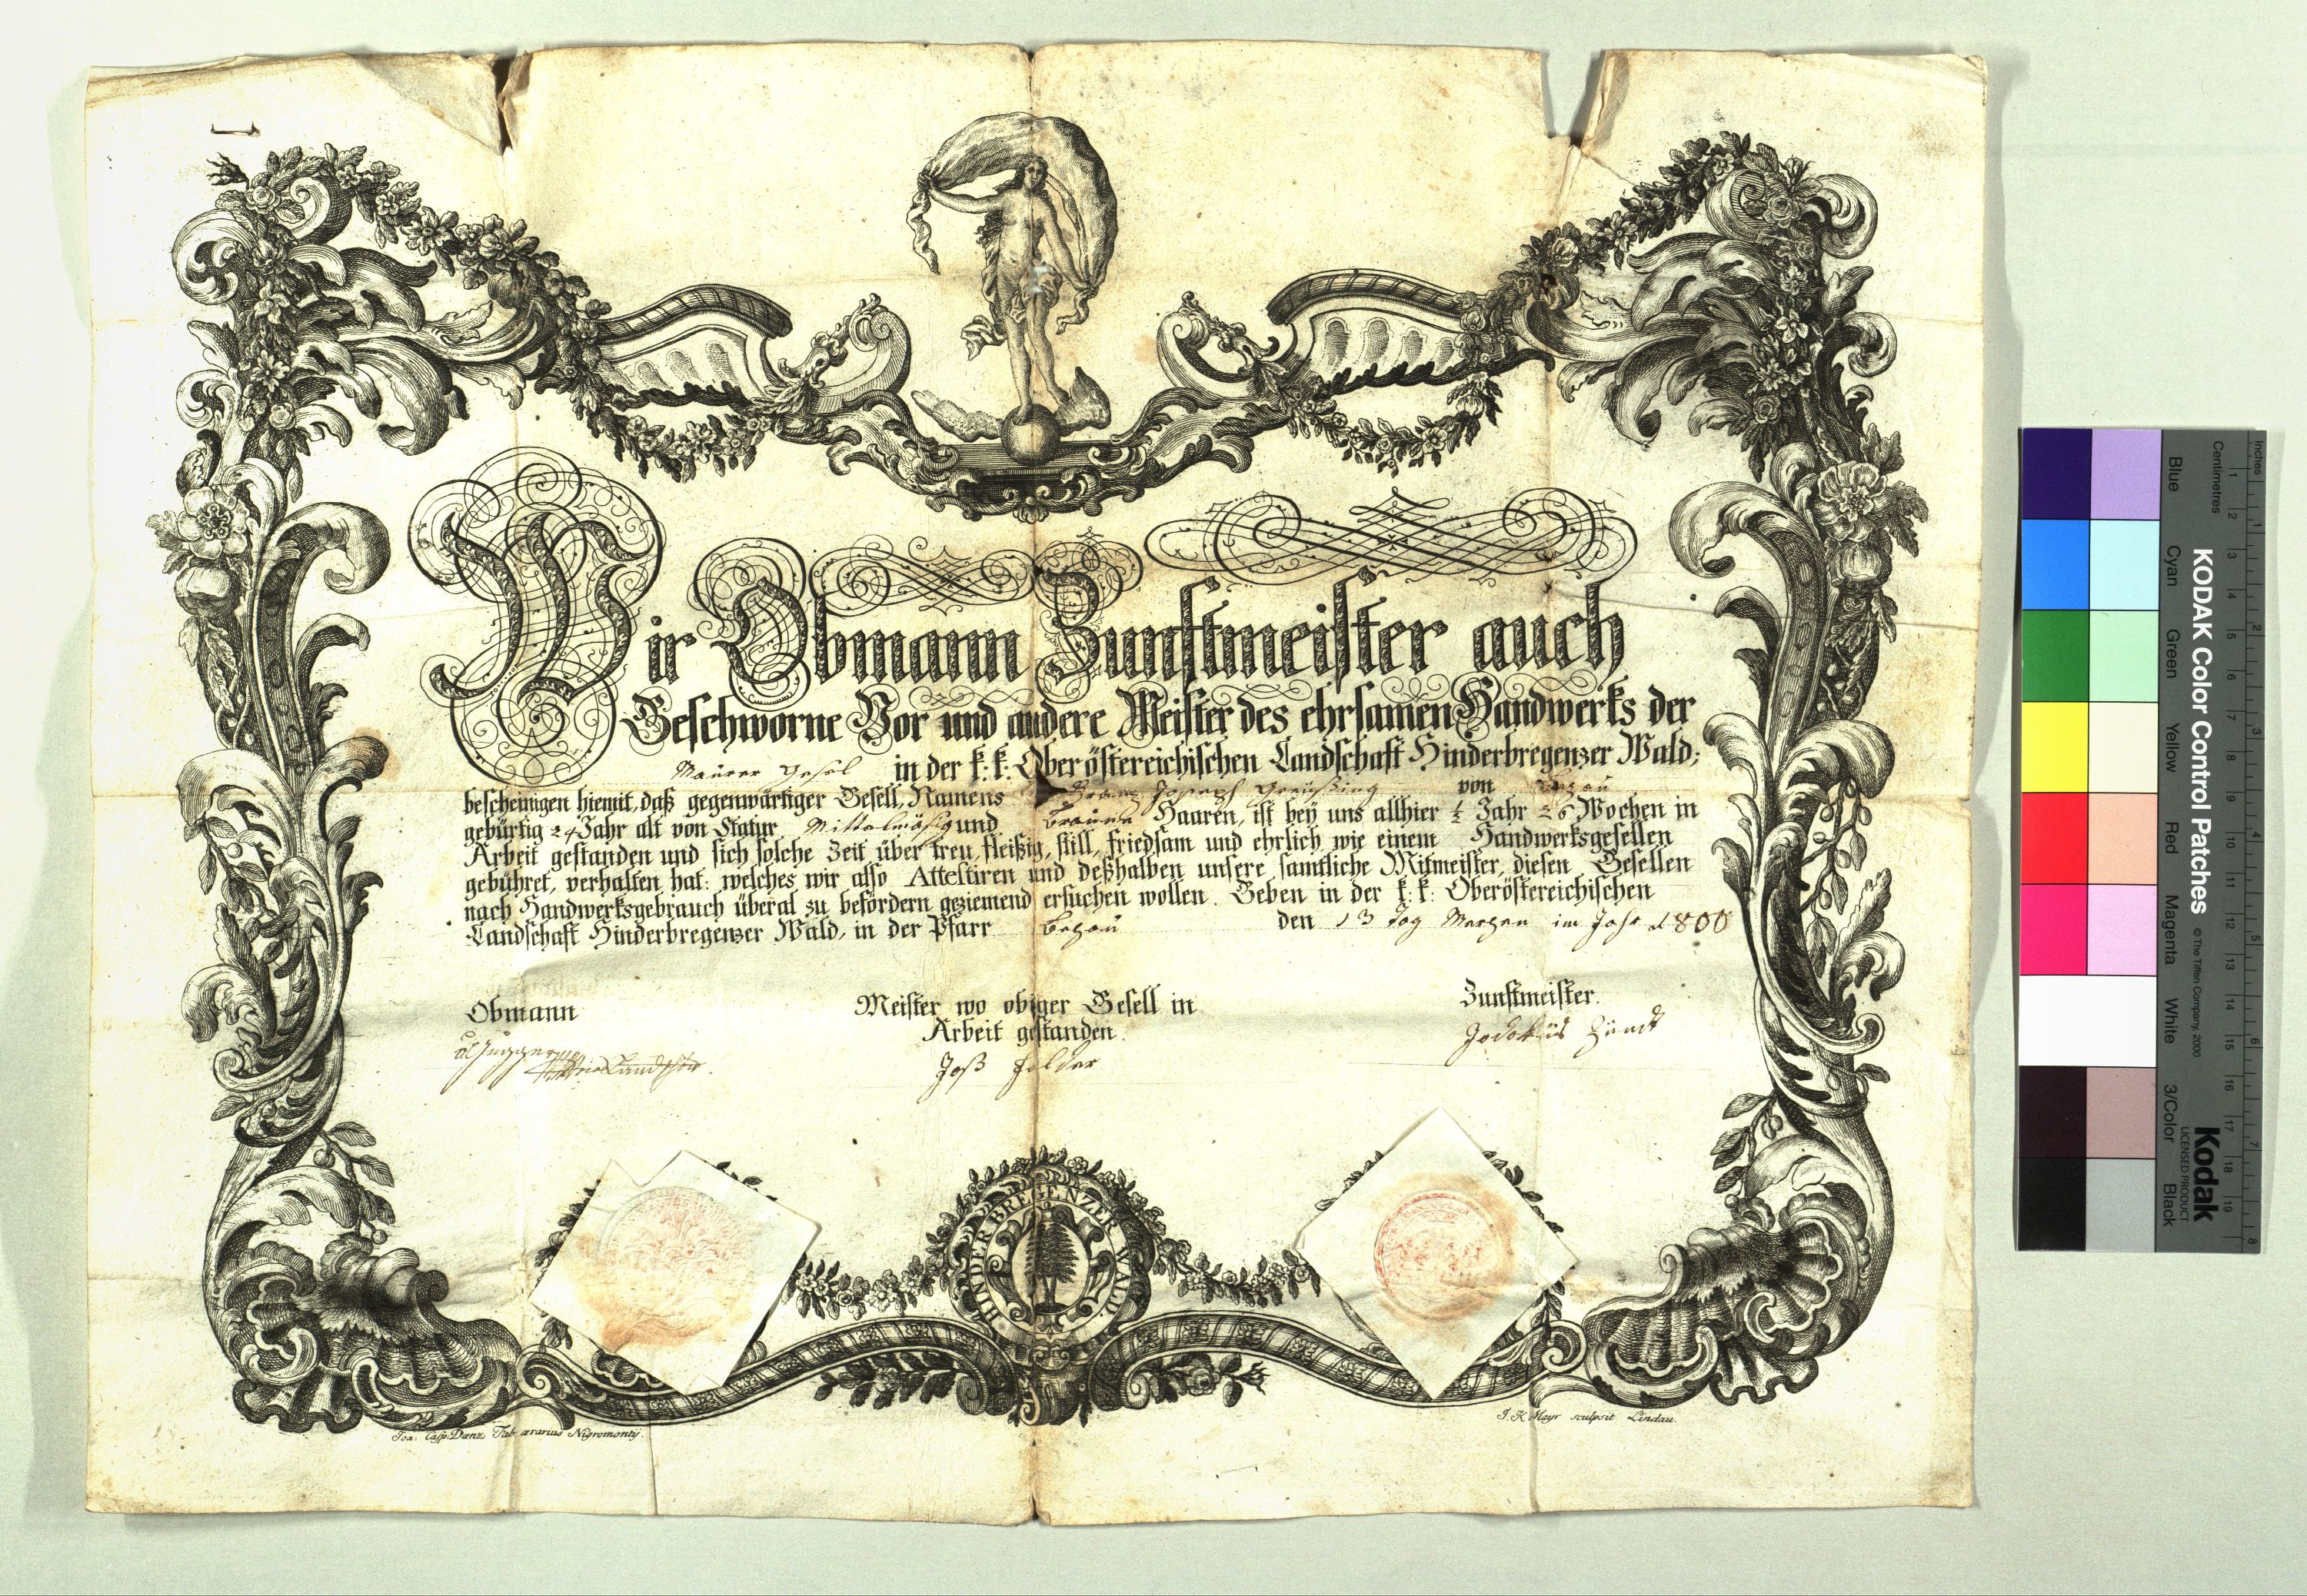 Wir Obmann Zunftmeister auch
Geschworne Vor und andere Meister des ehrsamen Handwerks der
Maurer Gesel in der k: k: Oberöstereichischen Landschaft Hinderbregenzer Wald;
bescheinigen hiemit, daß gegenwärtiger Gesell, Namens Franz Joseph Greüßing von Bezau
gebürtig 24 Jahr alt von Statur Mittelmäsig und Braune Haaren, ist bey uns allhier ½ Jahr 26 Wochen in
Arbeit gestanden und sich solche Zeit über treu, fleißig, still, friedsam und ehrlich wie einem Handwerksgesellen
gebühret, verhalten hat: welches wir also Attestiren und deßhalben unsere samtliche Mitmeister, diesen Gesellen
nach Handwerksgebrauch überal zu befördern geziemend ersuchen wollen. Geben in der k: k: Oberöstereichischen
Landschaft Hinderbregenzer Wald, in der Pfarr Bezau den 13 Tag Merzen im Jahr 1800
Obmann
Meister wo obiger Gesell in
Arbeit gestanden.
Zunftmeister.
Joß Felder
Jodokus Zündt
HINDER BREGENZER WALD
Joa: Casp: Danz Tub: ærarius Nigromontÿ.
J. K Mayr sculpsit Lindau.
Inches
Centimetres
Blue
Cyan
Green
Yellow
Red
Magenta
White
3/Color
Black
KODAK Color Control Patches
© The Tiffen Company, 2000
Kodak
LICENSED PRODUCT
1 2 3 4 5 6 7 8 9 10 11 12 13 14 15 16 17 18 19
1 2 3 4 5 6 7 8